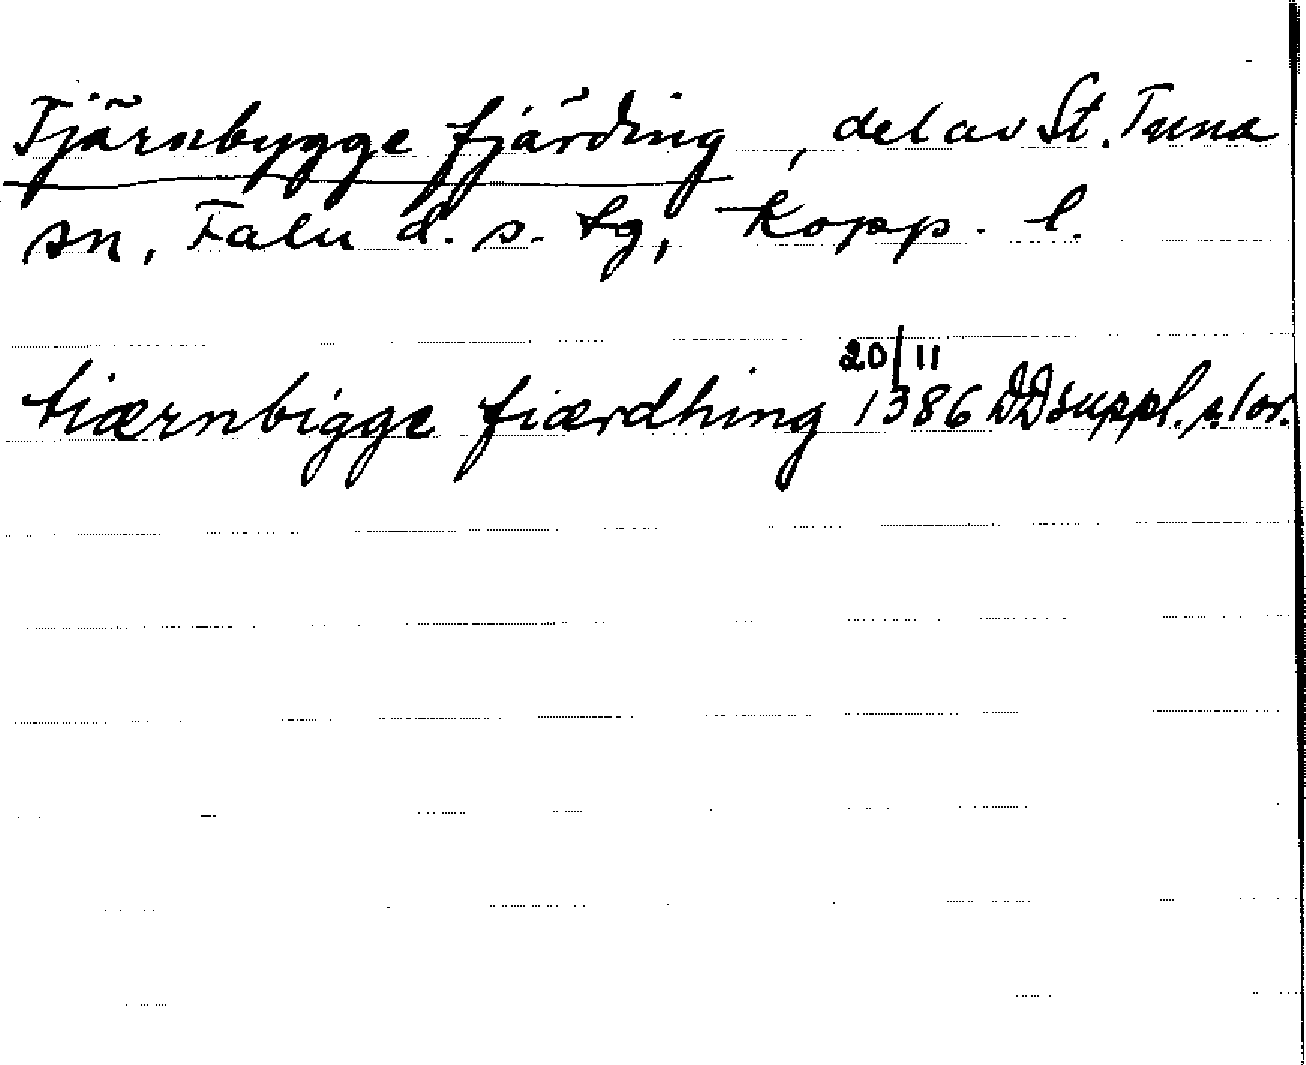 Tjärnbygge fjärding, del av St. Tuna
sn, Falu d. s. tg, Kopp. l.
20/11
tiærnbigge fiærdhing 1386 DD suppl. s. 1 or.